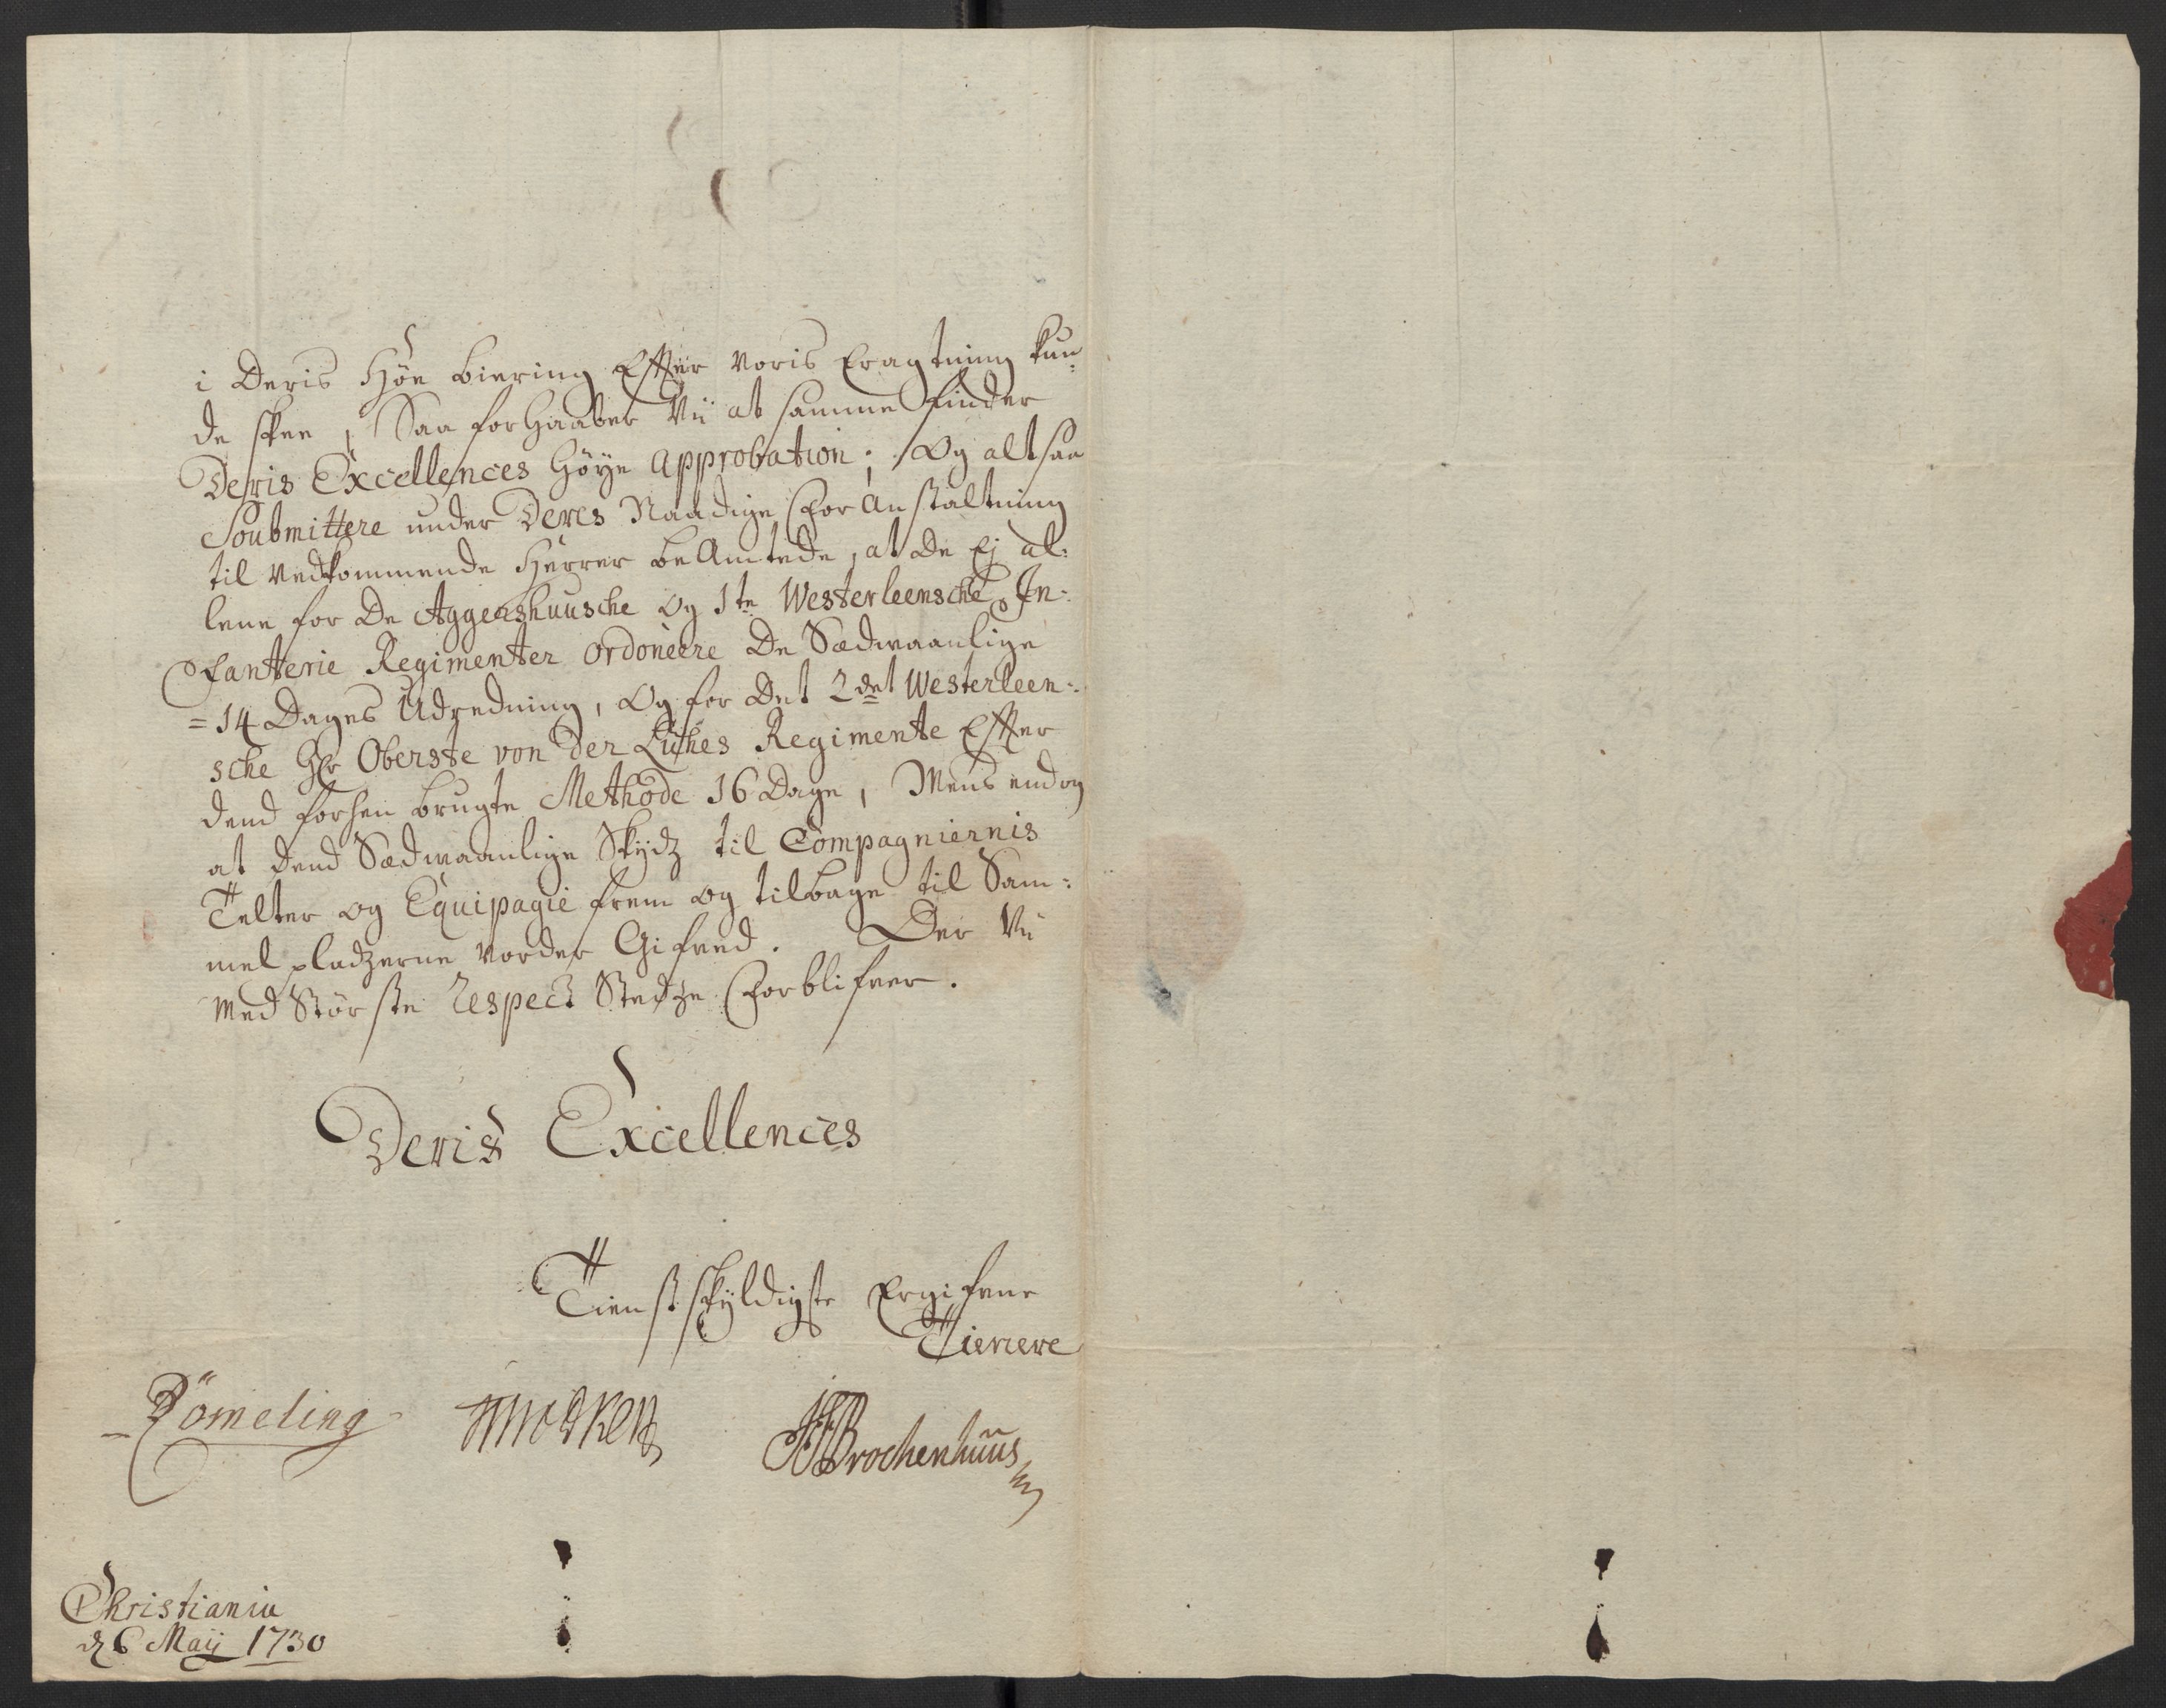 i Deris Höye biering Effter voris Eragtning kun-
de skee, Saa forhaaber Vii at samme finder
Deris Excellences höye Approbation; Og altsaa
Soubmittere under Deres Naadige Foranstaltning
til vedkommende Herrer beAmtede, at de Ej al-
lene for De Aggershuusche og 1te Westerleensche In-
fanterie Regimenter ordoneere De Sædwaanlige
= 14 Dages Udredning, Og for Det 2det Westerleen-
sche Hr Oberste von Der Lühes Regimente Effter
dend forhen brugte Methode 16 Dage, Mens endog
at dend Sædwaanlige Skydz til Compagniernis
Telter og Equipagie frem og tilbage til Sam-
mel pladzerne vorder Gifved. Der Vii
med Störste Respect Stedze Forblifver.
Deris Excellences
Tienstskyldigste Ergifvne
Tienere
Römeling HBrochenhuus
Christiania
d 6 Maij 1730